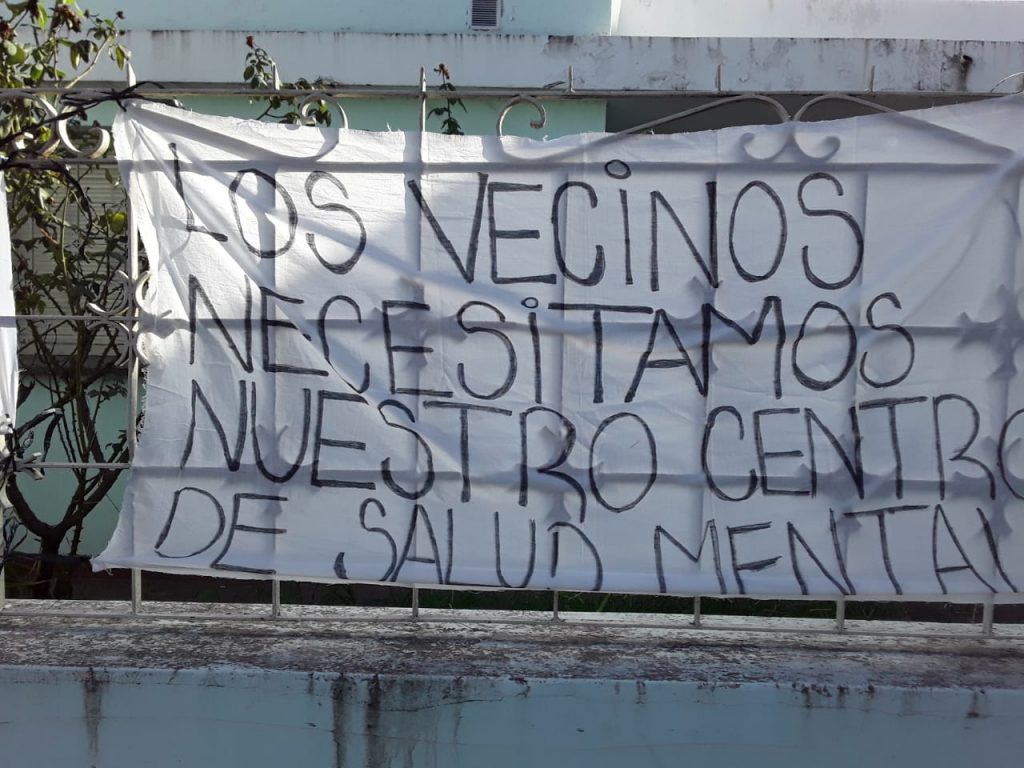 LOS VECINOS
NECESITAMOS
NUESTRO CENTRO
DE SALUD MENTAL